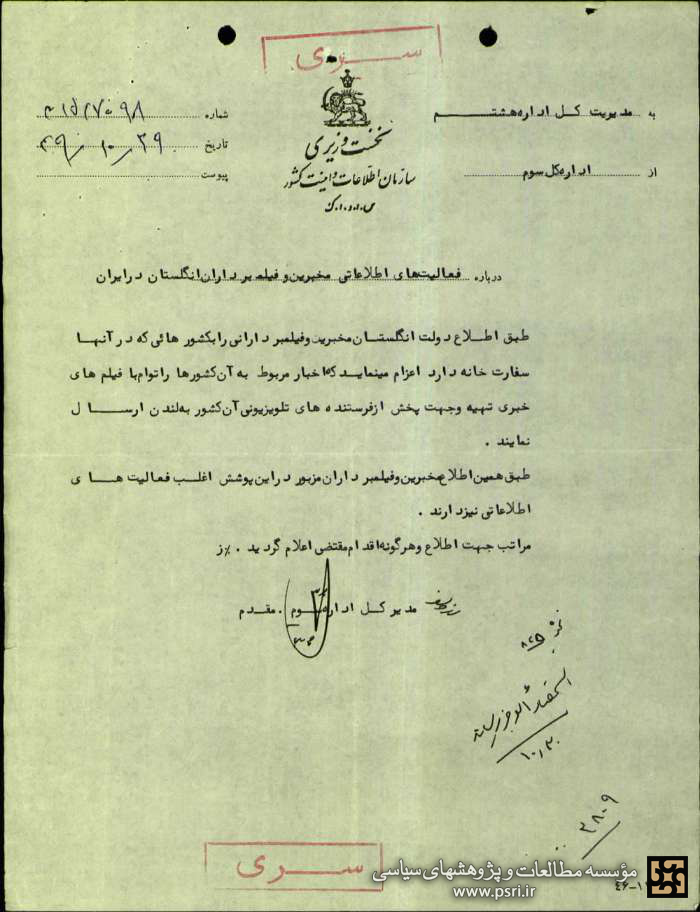 سری
به مدیریت کل اداره هشتم
از اداره کل سوم
نخست وزیری
سازمان اطلاعات و امنیت کشور
س.ا.و.ا.ک
شماره
تاریخ ۴۹/۱۰/۲۹
پیوست
درباره فعالیت‌های اطلاعاتی مخبرین و فیلمبرداران انگلستان در ایران
طبق اطلاع دولت انگلستان مخبرین و فیلمبردارانی را بکشورهائی که در آنها
سفارت خانه دارد اعزام مینماید که اخبار مربوط به آن کشورها را توام با فیلم های
خبری تهیه وجهت پخش از فرستنده های تلویزیونی آن کشور به لندن ارسال
نمایند .
طبق همین اطلاع مخبرین و فیلمبرداران مزبور در این پوشش اغلب فعالیت های
اطلاعاتی نیز دارند .
مراتب جهت اطلاع و هرگونه اقدام مقتضی اعلام گردید . %ز
مدیر کل اداره سوم . مقدم
۱۰/۳۰
۳۸۰۹
سری
مؤسسه مطالعات و پژوهشهای سیاسی
www.psri.ir